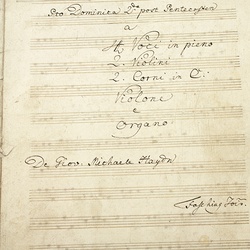 Pro Dominica 2da post Pentecosten
a
4 Voci in pieno
2. Violini
2. Corni in C.
Violone
e
Organo.
De Giov. Michaele Haydn